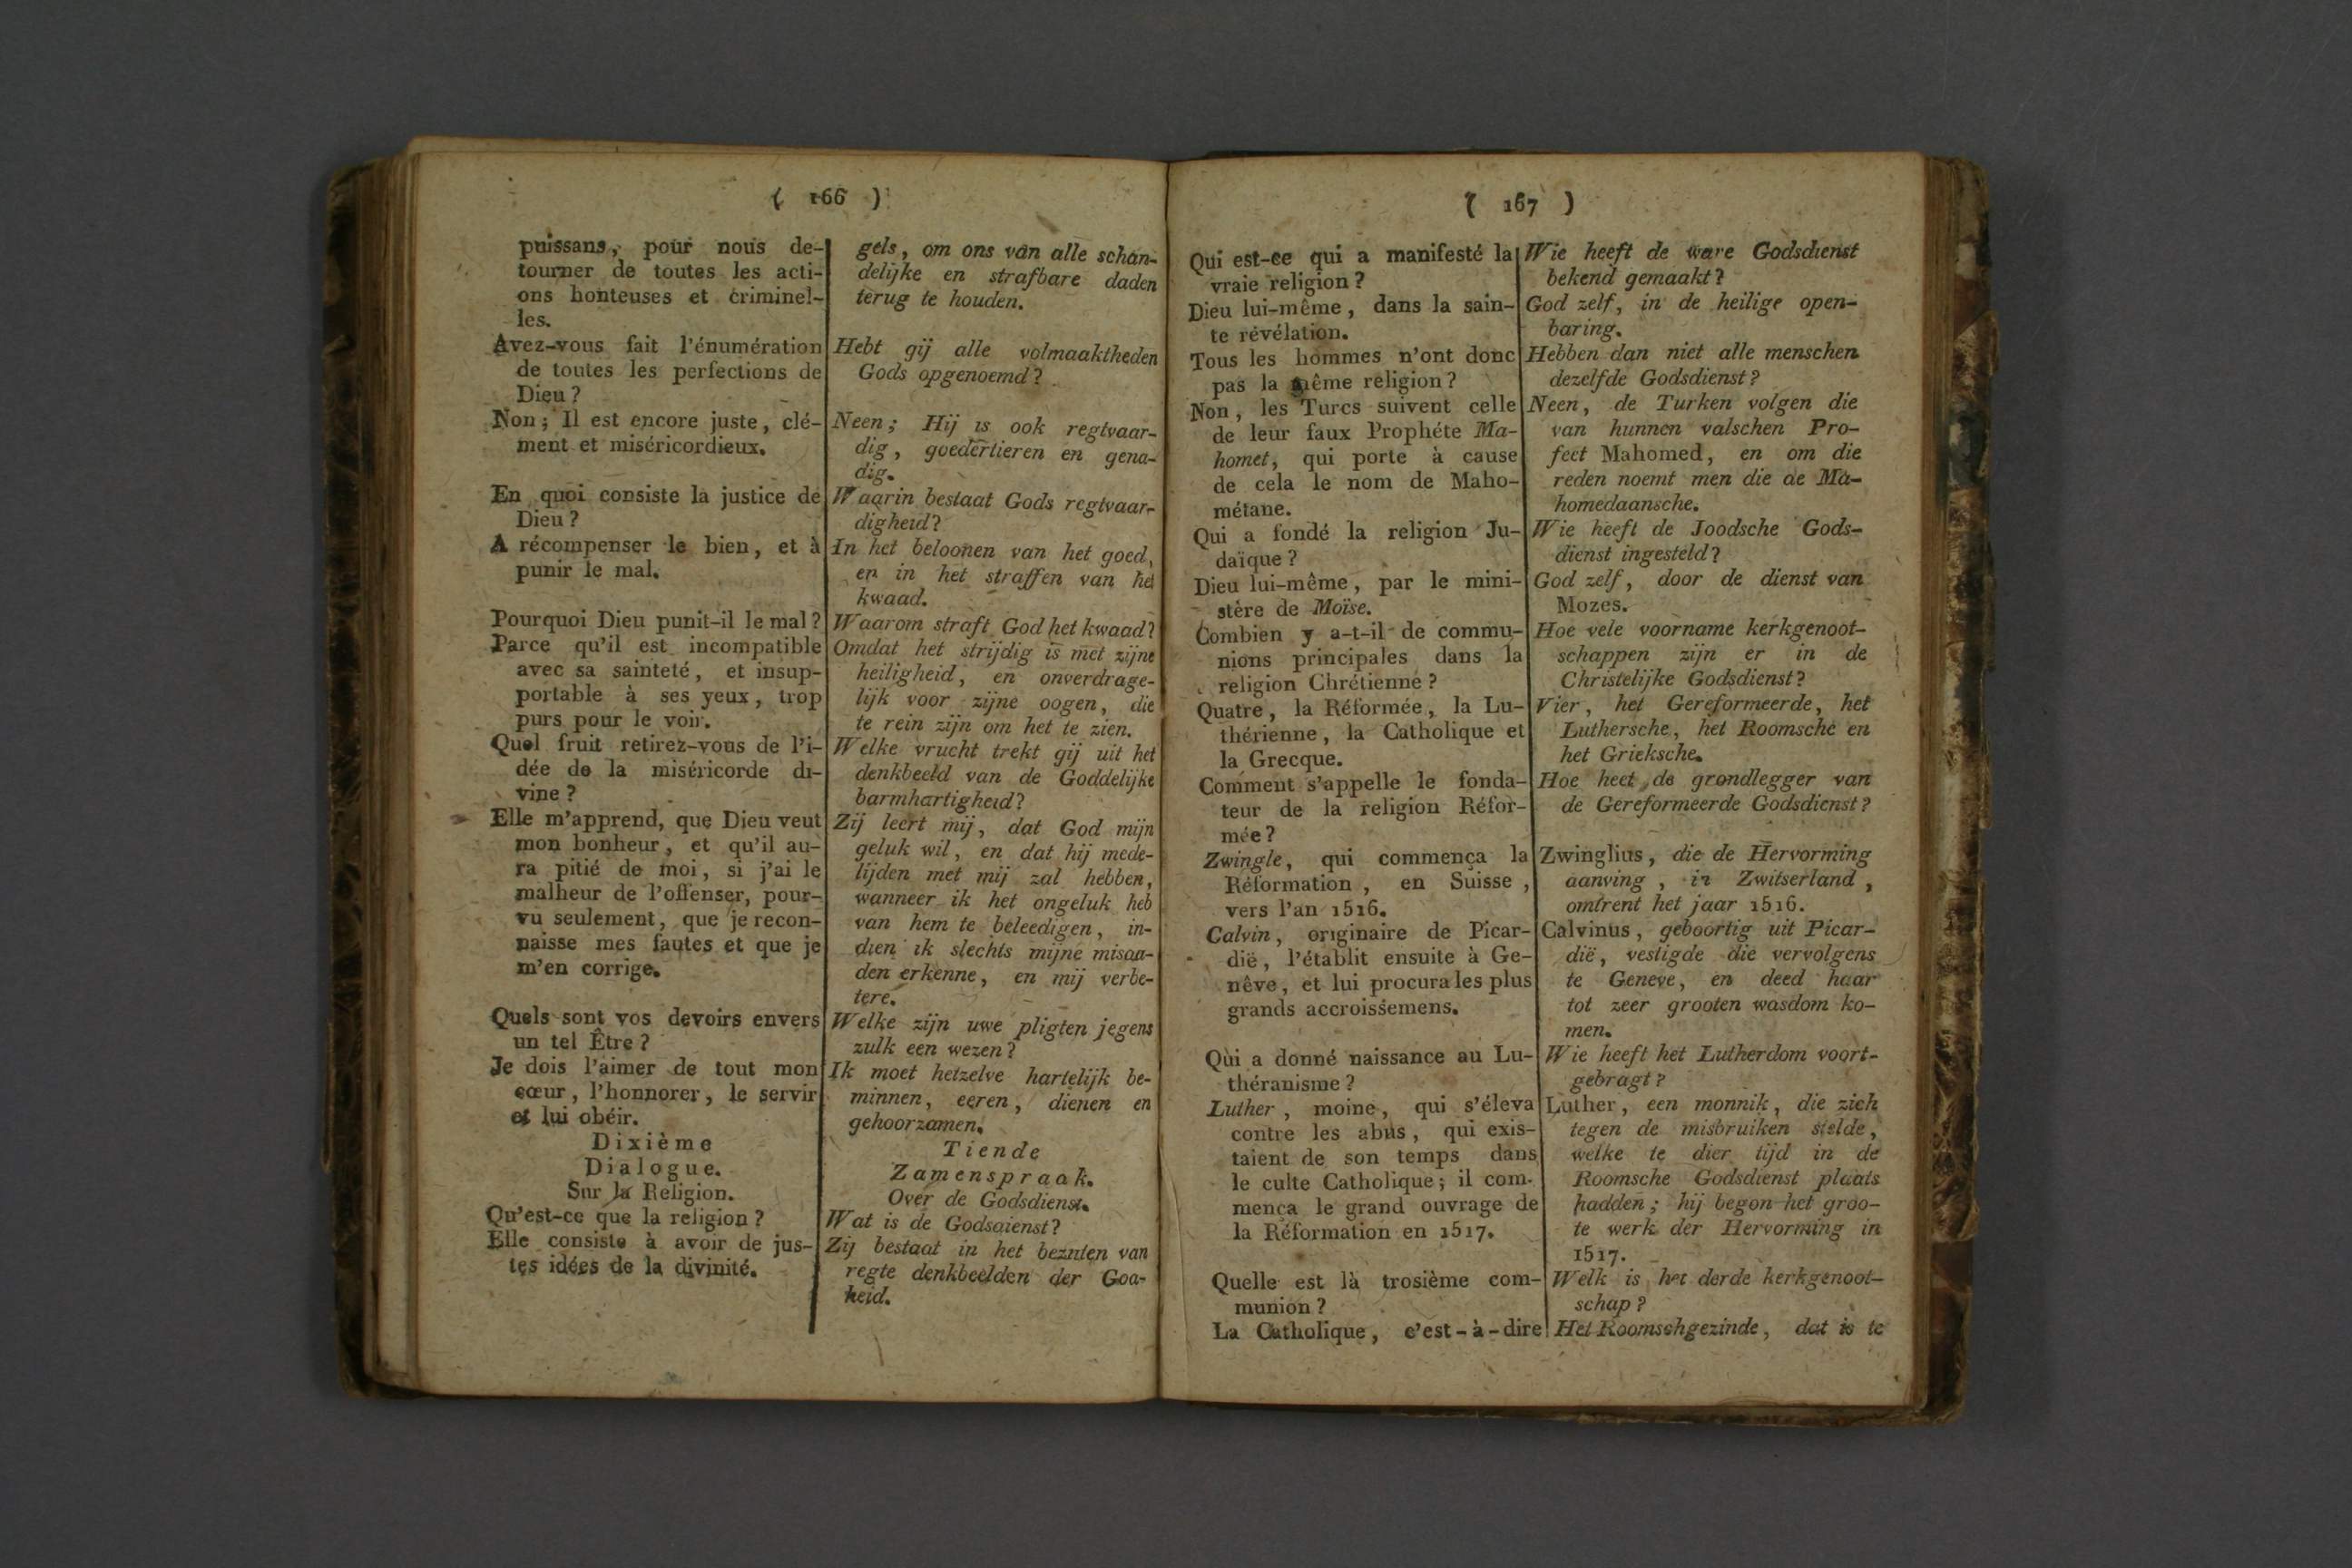 ( 166 )
puissans, pour nous de-
tourner de toutes les acti-
ons honteuses et criminel-
les.
Avez-vous fait l'énumération
de toutes les perfections de
Dieu ?
Non ; Il est encore juste, clé-
ment et miséricordieux.
En quoi consiste la justice de
Dieu ?
A récompenser le bien, et à
punir le mal.
Pourquoi Dieu punit-il le mal ?
Parce qu'il est incompatible
avec sa sainteté, et insup-
portable à ses yeux, trop
purs pour le voir.
Quel fruit retirez-vous de l'i-
dée de la miséricorde di-
vine ?
Elle m'apprend, que Dieu veut
mon bonheur, et qu'il au-
ra pitié de moi, si j'ai le
malheur de l'offenser, pour-
vu seulement, que je recon-
naisse mes fautes et que je
m'en corrige.
Quels sont vos devoirs envers
un tel Être ?
Je dois l'aimer de tout mon
cœur, l'honnorer, le servir
et lui obéir.
Dixième
Dialogue.
Sur la Religion.
Qu'est-ce que la religion ?
Elle consiste à avoir de jus-
tes idées de la divinité.
gels, om ons van alle schan-
delijke en strafbare daden
terug te houden.
Hebt gij alle volmaaktheden
Gods opgenoemd ?
Neen ; Hij is ook regtvaar-
dig, goedertieren en gena-
dig.
Waarin bestaat Gods regtvaar-
digheid ?
In het beloonen van het goed,
en in het straffen van het
kwaad.
Waarom straft God het kwaad ?
Omdat het strijdig is met zijne
heiligheid, en onverdrage-
lijk voor zijne oogen, die
te rein zijn om het te zien.
Welke vrucht trekt gij uit het
denkbeeld van de Goddelijke
barmhartigheid ?
Zij leert mij, dat God mijn
geluk wil, en dat hij mede-
lijden met mij zal hebben,
wanneer ik het ongeluk heb
van hem te beleedigen, in-
dien ik slechts mijne misda-
den erkenne, en mij verbe-
tere.
Welke zijn uwe pligten jegens
zulk een wezen ?
Ik moet hetzelve hartelijk be-
minnen, eeren, dienen en
gehoorzamen.
Tiende
Zamenspraak.
Over de Godsdienst.
Wat is de Godsdienst ?
Zij bestaat in het bezitten van
regte denkbeelden der God-
heid.
( 167 )
Qui est-ce qui a manifesté la
vraie religion ?
Dieu lui-même, dans la sain-
te révélation.
Tous les hommes n'ont donc
pas la même religion ?
Non, les Turcs suivent celle
de leur faux Prophéte Ma-
homet, qui porte à cause
de cela le nom de Maho-
métane.
Qui a fondé la religion Ju-
daïque ?
Dieu lui-même, par le mini-
stère de Moïse.
Combien y a-t-il de commu-
nions principales dans la
religion Chrétienne ?
Quatre, la Réformée, la Lu-
thérienne, la Catholique et
la Grecque.
Comment s'appelle le fonda-
teur de la religion Réfor-
mée ?
Zwingle, qui commença la
Réformation, en Suisse,
vers l'an 1516.
Calvin, originaire de Picar-
dië, l'établit ensuite à Ge-
nêve, et lui procura les plus
grands accroissemens.
Qui a donné naissance au Lu-
théranisme ?
Luther, moine, qui s'éleva
contre les abus, qui exis-
taient de son temps dans
le culte Catholique ; il com-
mença le grand ouvrage de
la Réformation en 1517.
Quelle est là trosième com-
munion ?
La Catholique, c'est-à-dire
Wie heeft de ware Godsdienst
bekend gemaakt ?
God zelf, in de heilige open-
baring.
Hebben dan niet alle menschen
dezelfde Godsdienst ?
Neen, de Turken volgen die
van hunnen valschen Pro-
feet Mahomed, en om die
reden noemt men die de Ma-
homedaansche.
Wie heeft de Joodsche Gods-
dienst ingesteld ?
God zelf, door de dienst van
Mozes.
Hoe vele voorname kerkgenoot-
schappen zijn er in de
Christelijke Godsdienst ?
Vier, het Gereformeerde, het
Luthersche, het Roomsche en
het Grieksche.
Hoe heet de grondlegger van
de Gereformeerde Godsdienst ?
Zwinglius, die de Hervorming
aanving, in Zwitserland,
omtrent het jaar 1516.
Calvinus, geboortig uit Picar-
dië, vestigde die vervolgens
te Geneve, en deed haar
tot zeer grooten wasdom ko-
men.
Wie heeft het Lutherdom voort-
gebragt ?
Luther, een monnik, die zich
tegen de misbruiken stelde,
welke te dier tijd in de
Roomsche Godsdienst plaats
hadden ; hij begon het groo-
te werk der Hervorming in
1517.
Welk is het derde kerkgenoot-
schap ?
Het Roomschgezinde, dat is te